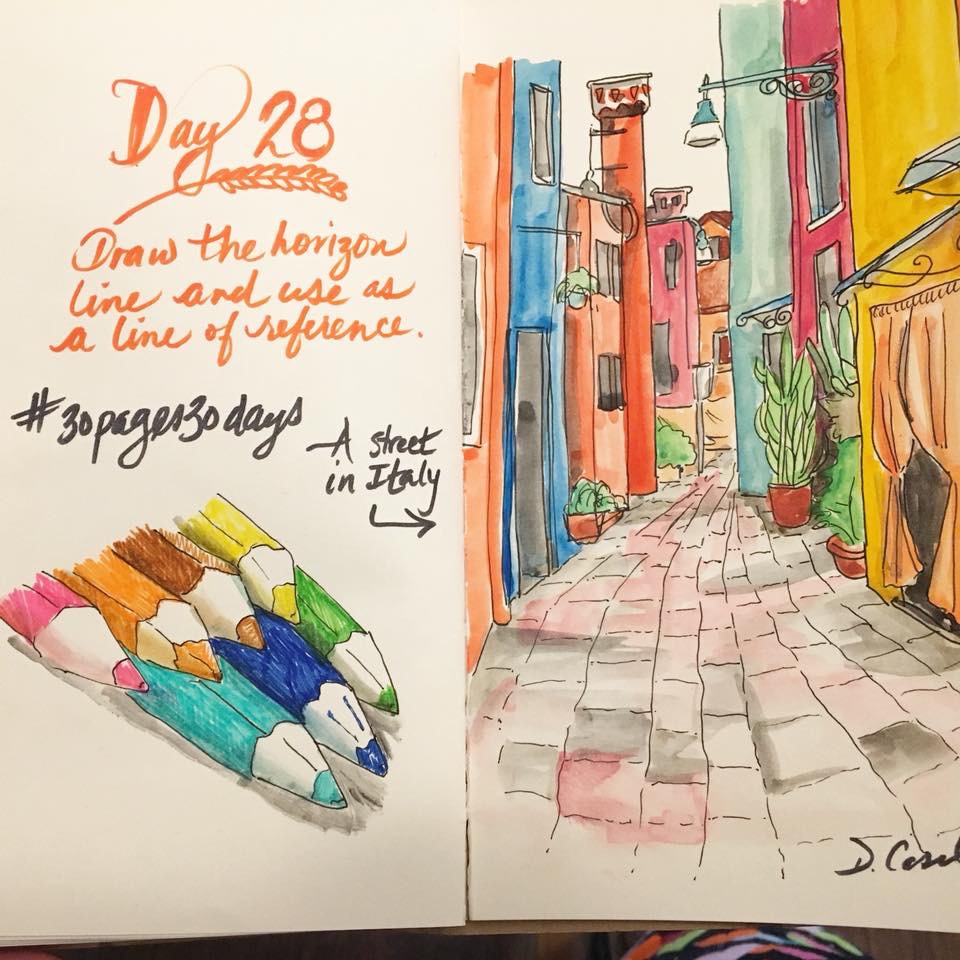 Day 28
Draw the horizon
line and use as
a line of reference.
#30pages30days
A street
in Italy
D.